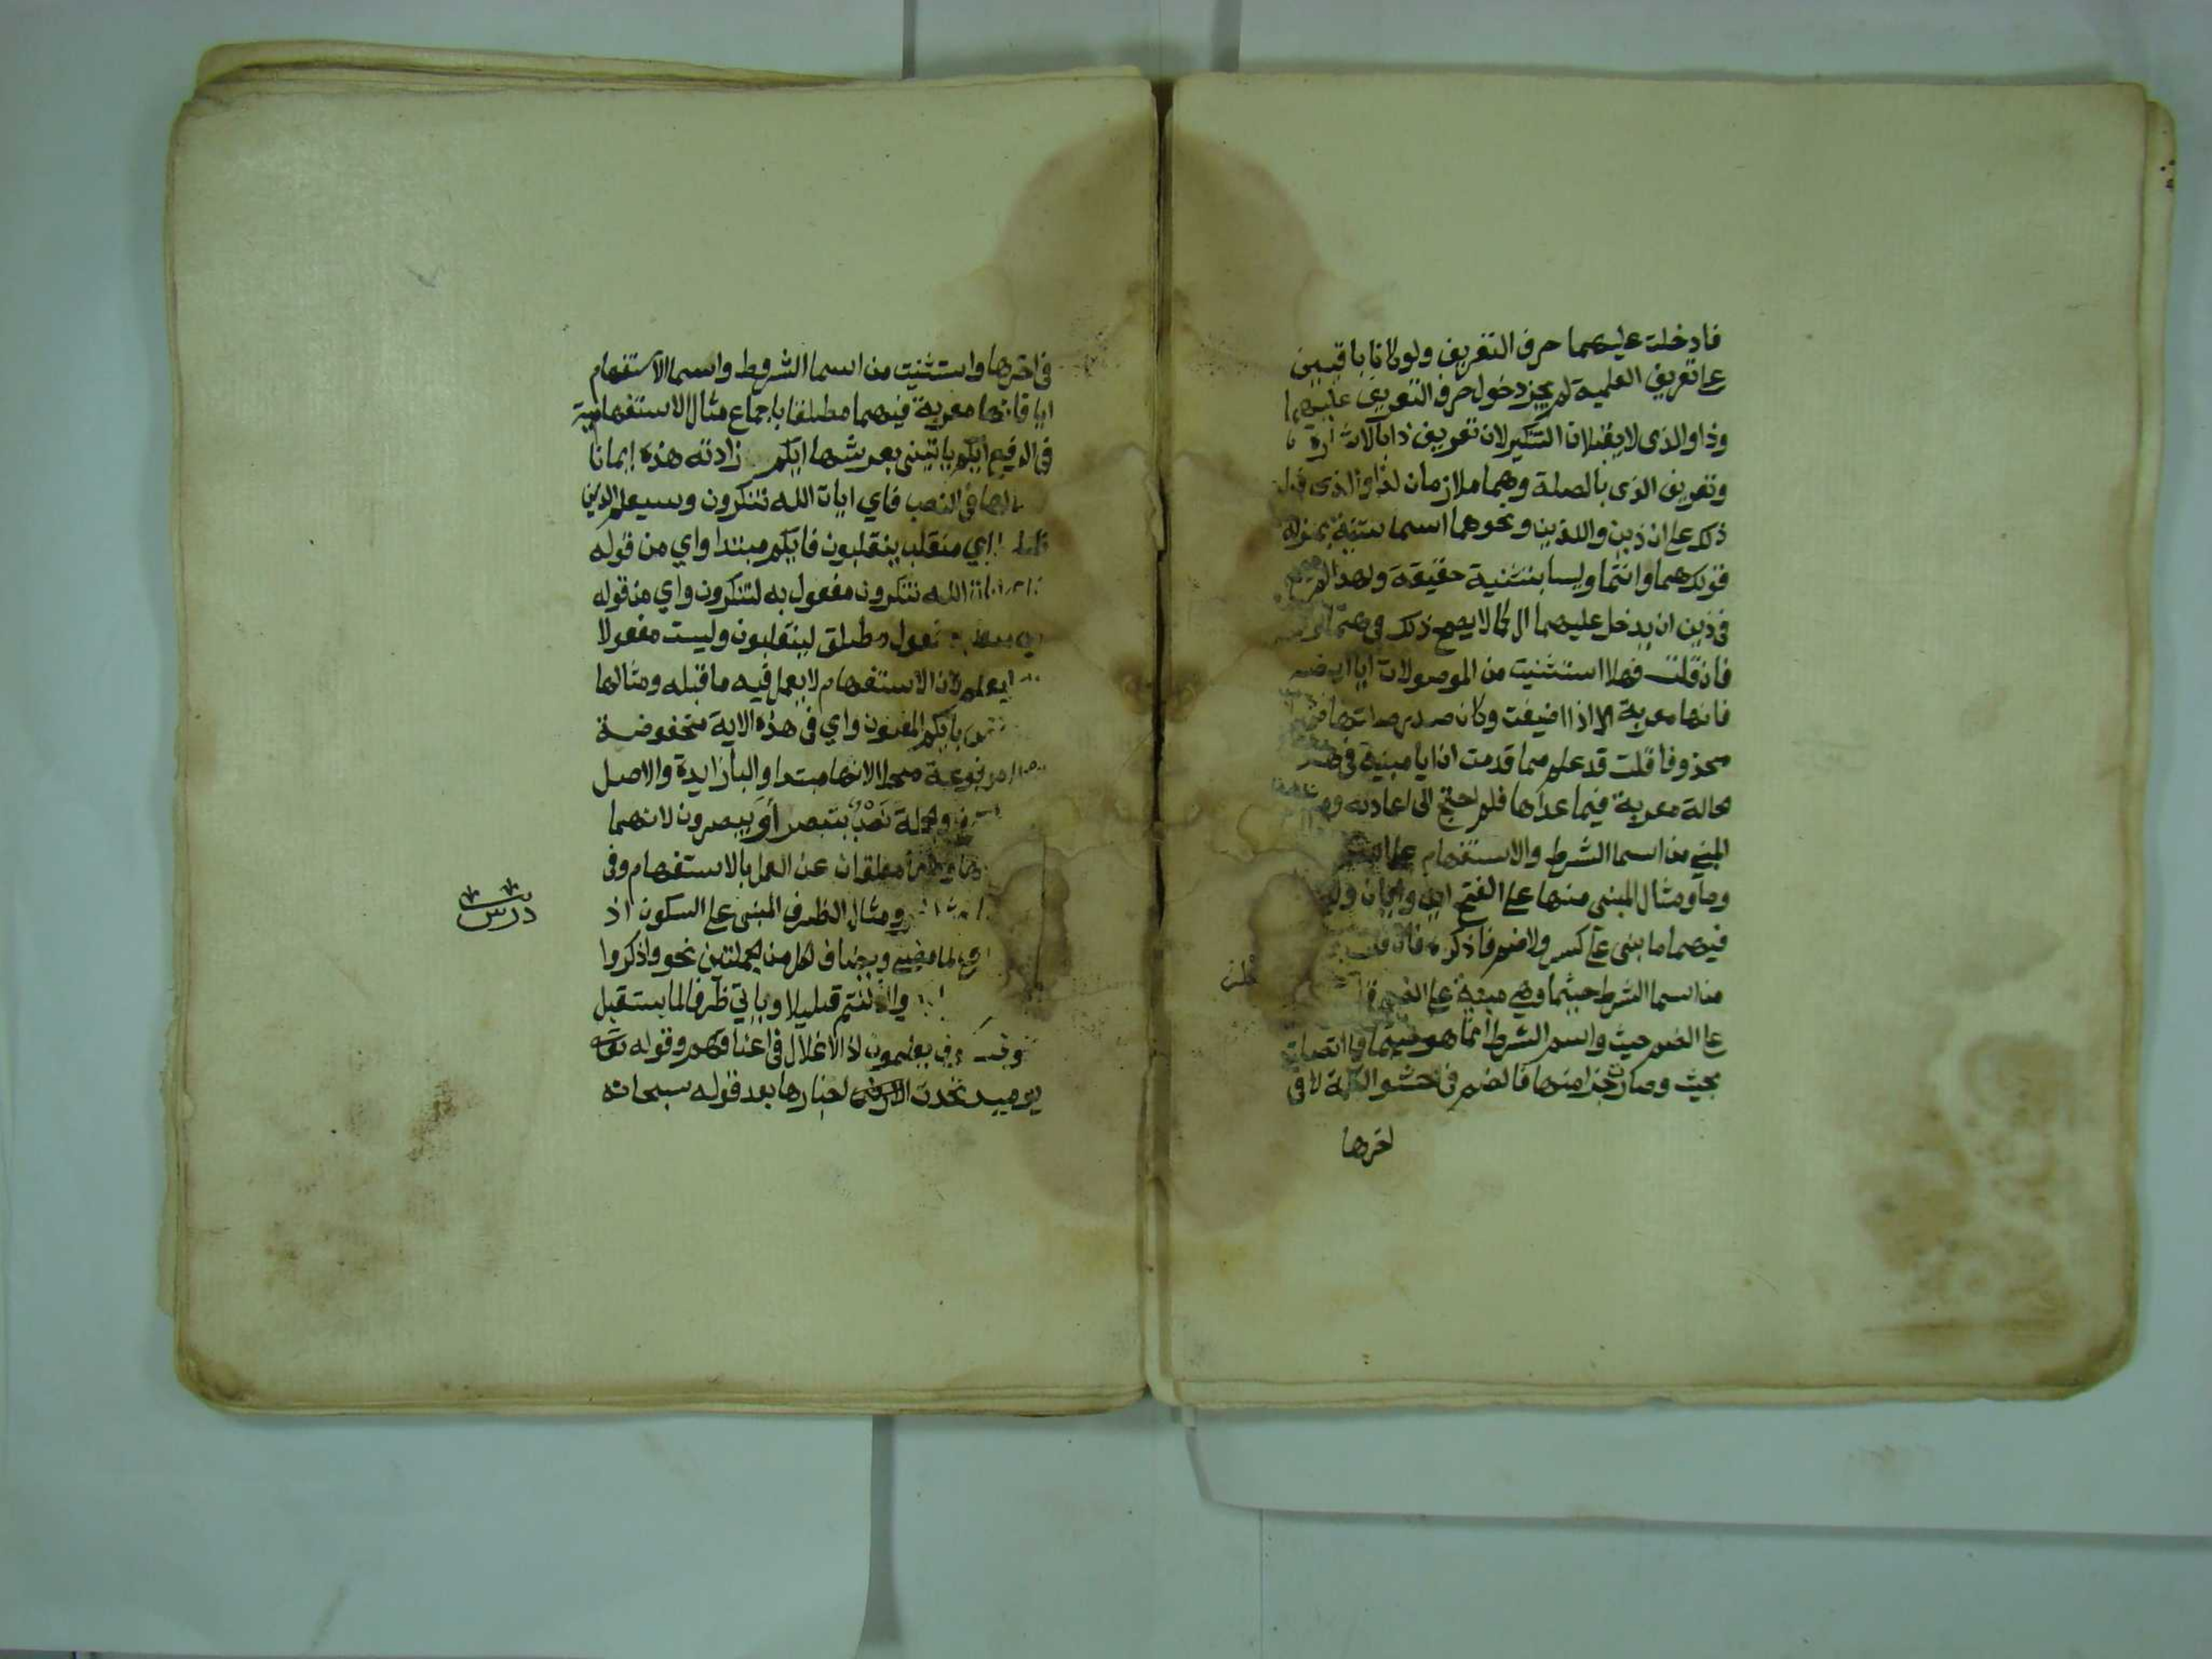 فادخلت عليهما حرف التعريف ولو كانا باقيين
على تعريف العلمية لم يجز دخول حرف التعريف عليهما
وذا والذي لا يقبلان التنكير لان تعريف ذا بالاشارة
وتعريف الذي بالصلة وهما ملازمان لذا والذي فدل
ذلك على ان ذين واللذين ونحوهما اسما تثنية بمنزلة
قولك هما وانتما وليسا بتثنية حقيقة ولهذا لم يصح
في ذين ان يدخل عليهما ال كما لا يصح ذلك في هما
فان قلت فهلا استثنيت من الموصولات ايا ايضا
فانها معربة الا اذا اضيفت وكان صدر صلتها ضميرا
محذوفا قلت قد علم مما قدمت ان ايا مبنية في
حالة معربة فيما عداها فلم احتج الى اعادته
المبني من اسما الشرط والاستفهام على
وما ومثال المبني منها على الفتح اين وايان
فيهما ما بني على كسر ولا ضم فاذكره فان قلت
من اسما الشرط حيثما وهي مبنية على الضم
على الضم حيث واسم الشرط انما هو حيثما فما اتصلت
بحيث وصارت جزا منها فالضم في حشو الكلمة لا في
اخرها
في اخرها واستثنيت من اسما الشرط واسما الاستفهام
ايا فانها معربة فيهما مطلقا باجماع مثال الاستفهامية
في الرفع ايكم ياتيني بعرشها ايكم زادته هذه ايمانا
في النصب فاي ايات الله تنكرون وسيعلم الذين
اي منقلب ينقلبون فايكم مبتدا واي من قوله
الله تنكرون مفعول به لتنكرون واي من قوله
مفعول مطلق لينقلبون وليست مفعولا
ليعلم لان الاستفهام لا يعمل فيه ما قبله ومثالها
بايكم المفتون واي في هذه الاية مخفوضة
مرفوعة محلا لانها مبتدا والبا زايدة والاصل
والجملة نصب بتبصر او يبصرون لانهما
معلقان عن العمل بالاستفهام وفي
ومثال الظرف المبني على السكون اذ
لما مضى ويضاف لكل من الجملتين نحو واذكروا
واذ انتم قليلا وياتي ظرفا لما يستقبل
يعلمون اذ الاغلال في اعناقهم وقوله تعالى
يوميذ تحدث اخبارها بعد قوله سبحانه
درس